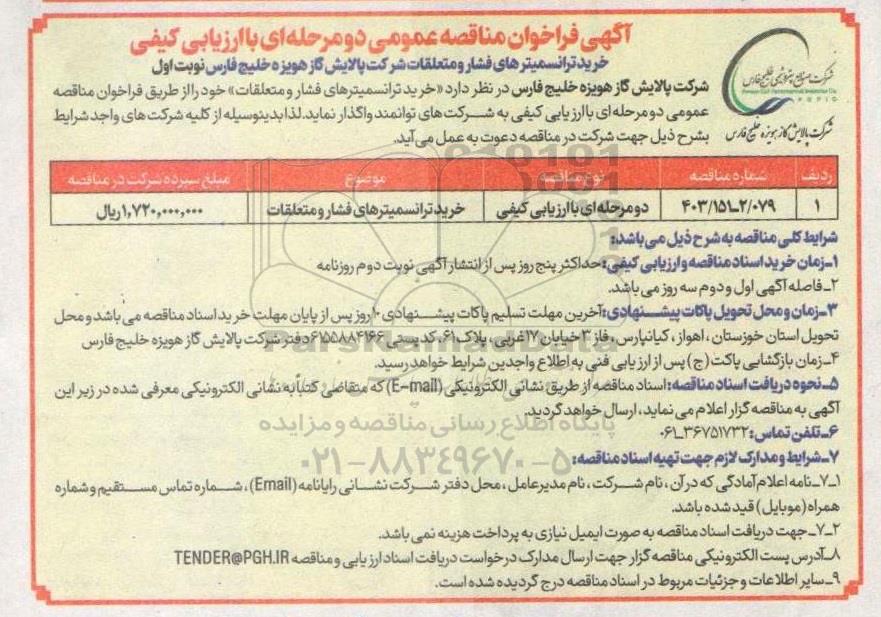 آگهی فراخوان مناقصه عمومی دو مرحله ای با ارزیابی کیفی
خرید ترانسمیترهای فشار و متعلقات شرکت پالایش گاز هویزه خلیج فارس نوبت اول
شرکت صنایع پتروشیمی خلیج فارس
Persian Gulf Petrochemical Industries Co.
PGPIC
شرکت پالایش گاز هویزه خلیج فارس
شرکت پالایش گاز هویزه خلیج فارس در نظر دارد «خرید ترانسمیترهای فشار و متعلقات» خود را از طریق فراخوان مناقصه
عمومی دو مرحله ای با ارزیابی کیفی به شرکت های توانمند واگذار نماید. لذا بدینوسیله از کلیه شرکت های واجد شرایط
بشرح ذیل جهت شرکت در مناقصه دعوت به عمل می آید.
ردیف شماره مناقصه نوع مناقصه موضوع مبلغ سپرده شرکت در مناقصه
۱ ۴۰۳/۱۵۱ـ۲/۰۷۹ دو مرحله ای با ارزیابی کیفی خرید ترانسمیترهای فشار و متعلقات ۱,۷۲۰,۰۰۰,۰۰۰ ریال
شرایط کلی مناقصه به شرح ذیل می باشد:
۱ـ زمان خرید اسناد مناقصه و ارزیابی کیفی: حداکثر پنج روز پس از انتشار آگهی نوبت دوم روزنامه
۲ـ فاصله آگهی اول و دوم سه روز می باشد.
۳ـ زمان و محل تحویل پاکات پیشنهادی: آخرین مهلت تسلیم پاکات پیشنهادی ۱۰ روز پس از پایان مهلت خرید اسناد مناقصه می باشد و محل
تحویل استان خوزستان، اهواز، کیانپارس، فاز ۳ خیابان ۱۷ غربی، پلاک ۶۱، کد پستی ۶۱۵۵۸۸۴۱۶۶ دفتر شرکت پالایش گاز هویزه خلیج فارس
۴ـ زمان بازگشایی پاکت (ج) پس از ارزیابی فنی به اطلاع واجدین شرایط خواهد رسید.
۵ـ نحوه دریافت اسناد مناقصه: اسناد مناقصه از طریق نشانی الکترونیکی (E-mail) که متقاضی کتباً به نشانی الکترونیکی معرفی شده در زیر این
آگهی به مناقصه گزار اعلام می نماید، ارسال خواهد گردید.
۶ـ تلفن تماس: ۳۶۷۵۱۷۳۲ـ۰۶۱
۷ـ شرایط و مدارک لازم جهت تهیه اسناد مناقصه:
۱ـ۷ـ نامه اعلام آمادگی که در آن، نام شرکت، نام مدیرعامل، محل دفتر شرکت نشانی رایانامه (Email)، شماره تماس مستقیم و شماره
همراه (موبایل) قید شده باشد.
۲ـ۷ـ جهت دریافت اسناد مناقصه به صورت ایمیل نیازی به پرداخت هزینه نمی باشد.
۸ـ آدرس پست الکترونیکی مناقصه گزار جهت ارسال مدارک درخواست دریافت اسناد ارزیابی و مناقصه TENDER@PGH.IR
۹ـ سایر اطلاعات و جزئیات مربوط در اسناد مناقصه درج گردیده شده است.
ParsNamadData
پایگاه اطلاع رسانی مناقصه و مزایده
۰۲۱-۸۸۳۴۹۶۷۰-۵